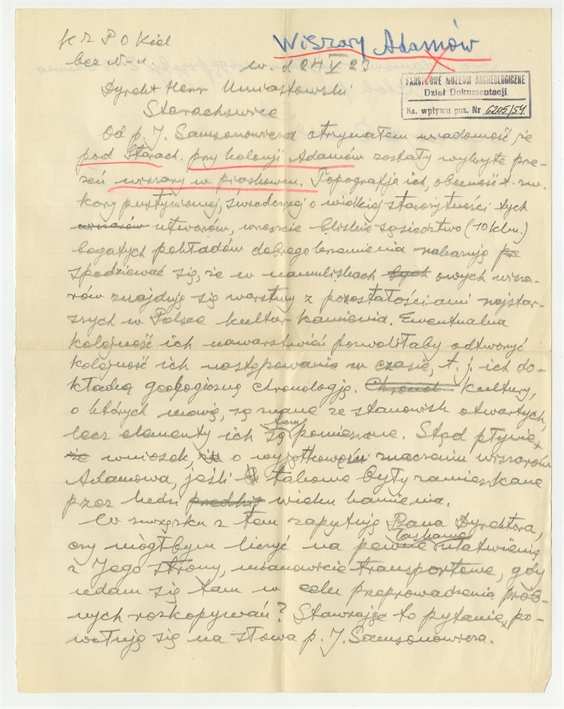 Wiszary Adamów
w. d 24 V 23
PAŃSTWOWE MUZEUM ARCHEOLOGICZNE
Dział Dokumentacji
Ks. wpływu pus. Nr 6205/54
Dyrekt Herr
Starachowice
Od p. J. Samsonowicza otrzymałem wiadomość, że
pod Starach. przy kolonji Adamów zostały wykryte prze-
zeń wiszary w piaskowcu. Topografja ich, obecność t. zw.
kory pustyniowej, świadczącej o wielkiej starożytności tych
wiszarów utworów, wreszcie bliskie sąsiedztwo (10 klm.)
bogatych pokładów dobrego krzemienia nakazują
spodziewać się, że w namuliskach tych owych wisza-
rów znajdują się warstwy z pozostałościami najstar-
szych w Polsce kultur kamienia. Ewentualna
kolejność ich nawarstwień pozwoliłaby odtworzyć
kolejność ich następowania w czasie, t. j. ich do-
kładną geologiczną chronologję. Kultury,
o których mówię, są znane ze stanowisk otwartych,
lecz elementy ich są tam pomieszane. Stąd płynie
wniosek o wyjątkowem znaczeniu wiszarów
Adamowa, jeśli takowe były zamieszkane
przez ludzi wieku kamienia.
W związku z tem zapytuję Pana Dyrektora,
czy mógłbym liczyć na pewne łaskawe ułatwienie
z Jego strony, mianowicie transportowe, gdy
udam się tam w celu przeprowadzenia prób-
nych rozkopywań? Stawiając to pytanie, po-
wołuję się na słowa p. J. Samsonowicza.